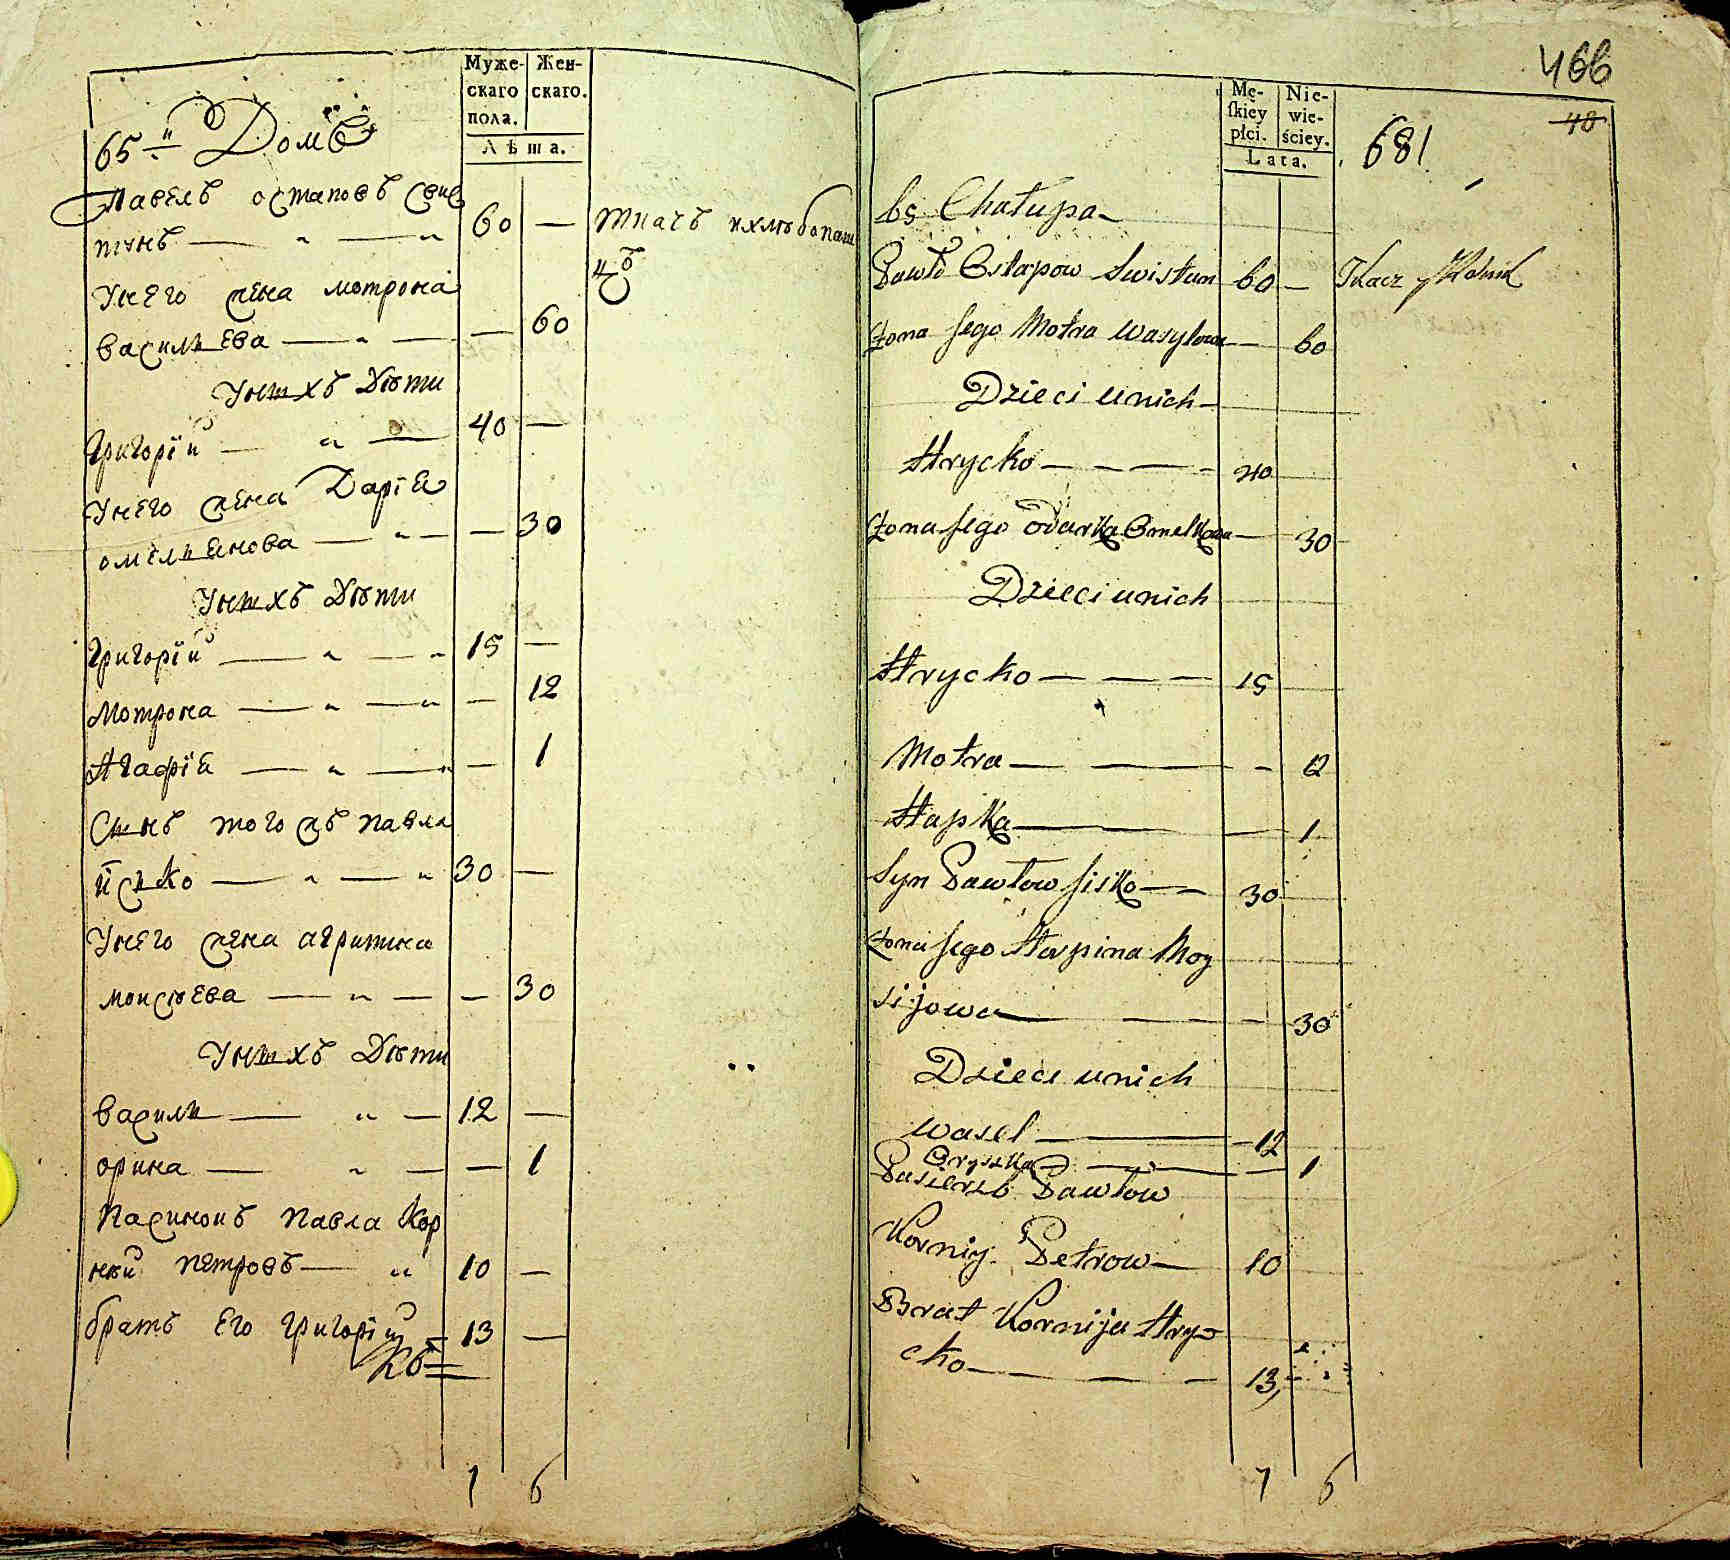 Муже-
скаго
пола.
Жен-
скаго.
Лѣта.
65-й Домъ
Павелъ Остаповъ Свис
тунъ — „ — „ 60 — Ткачъ и хлѣбопаш
Унего жена мотрона
василиева — „ — — 60
Унихъ Дѣти
Григорїй — „ — 40 —
Унего жена Дарїя
омелиянова — „ — — 30
Унихъ Дѣти
Григорїй — „ — „ 15 —
Мотрона — „ — „ — 12
Агафїя — „ — „ — 1
Синъ того жъ павла
йсико — „ — „ 30 —
Унего жена агрипина
моисѣева — „ — — 30
Унихъ Дѣти
васили — „ — 12 —
орина — „ — — 1
Пасинокъ павла Кор
нѣй петровъ — „ 10 —
братъ Его григорїй 13 —
7 6
466
48
681
Mę-
skiey
płci.
Nie-
wie-
ściey.
Lata.
65 Chałupa
Pawło Ostapow Swistun 60 — Tkacz y Rolnik
Żona Jego Motra Wasylowa — 60
Dzieci unich
Hrycko — — — 40
Żona Jego Odarka Omelkowa — 30
Dzieci unich
Hrycko — — — 15
Motra — — — 12
Hapka — — 1
Syn Pawłow Jisko — — 30
Żona Jego Horpina Moy
sijowa — — — 30
Dzieci unich
Wasel — 12
Oryszka — — — 1
Pasierzb Pawłow
Korniy Petrow — 10
Brat Kornija Hry-
cko — — — 13, —
7 6